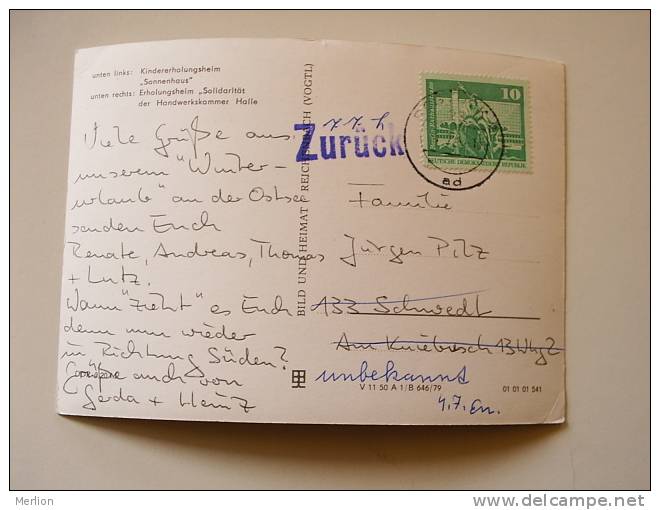 unten links: Kindererholungsheim
„Sonnenhaus"
unten rechts: Erholungsheim „Solidarität
der Handwerkskammer Halle
Viele Grüße aus
unserem "Winter-
urlaub" an der Ostsee
senden Euch
Renate, Andreas, Thomas
+ Lutz.
Wann "zieht" es Euch
denn nun wieder
in Richtung Süden?
Grüße auch von
Gerda + Heinz
BILD UND HEIMAT REICHENBACH (VOGTL)
Zurück
10
DEUTSCHE DEMOKRATISCHE REPUBLIK
ad
Familie
Jürgen Pilz
133 Schwedt
Am Kniebusch 13 Whg 2
unbekannt
V 11 50 A 1/B 646/79
01 01 01 541
4.7.
Merlion
www.delcampe.net